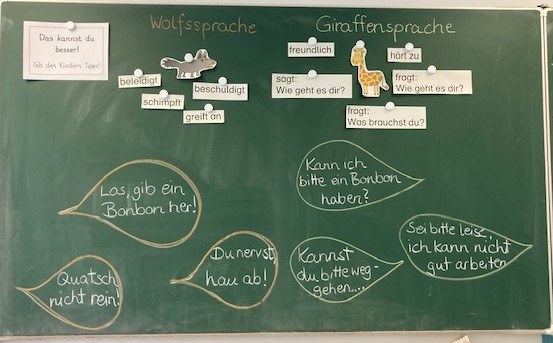 Das kannst du
besser!
Gib den Kindern Tipps!
Wolfssprache
beleidigt
beschuldigt
schimpft
greift an
Giraffensprache
freundlich
hört zu
sagt:
Wie geht es dir?
fragt:
Wie geht es dir?
fragt:
Was brauchst du?
Los, gib ein
Bonbon her!
Du nervst,
hau ab!
Quatsch
nicht rein!
Kann ich
bitte ein Bonbon
haben?
Kannst
du bitte weg-
gehen....
Sei bitte leise,
ich kann nicht
gut arbeiten